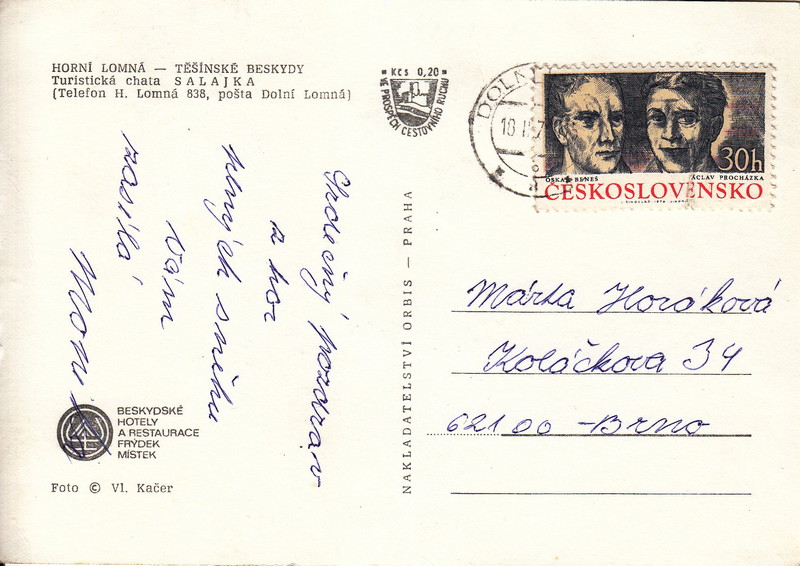 HORNÍ LOMNÁ — TĚŠÍNSKÉ BESKYDY
Turistická chata SALAJKA
(Telefon H. Lomná 838, pošta Dolní Lomná)
Kčs 0,20
VE PROSPĚCH CESTOVNÍHO RUCHU
DOLNÍ
30h
OSKAR BENEŠ
VÁCLAV PROCHÁZKA
ČESKOSLOVENSKO
Srdečný pozdrav
z hor
plných sněhu
Vám
zasílá
NAKLADATELSTVÍ ORBIS — PRAHA
Márta Horáková
Koláčkova 34
621 00 - Brno
BESKYDSKÉ
HOTELY
A RESTAURACE
FRÝDEK
MÍSTEK
Foto © Vl. Kačer